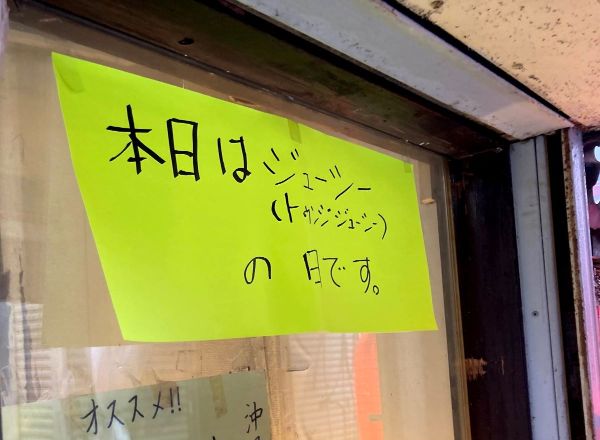 本日はジューシー
(トゥンジージューシー)
の日です。
オススメ!!
沖